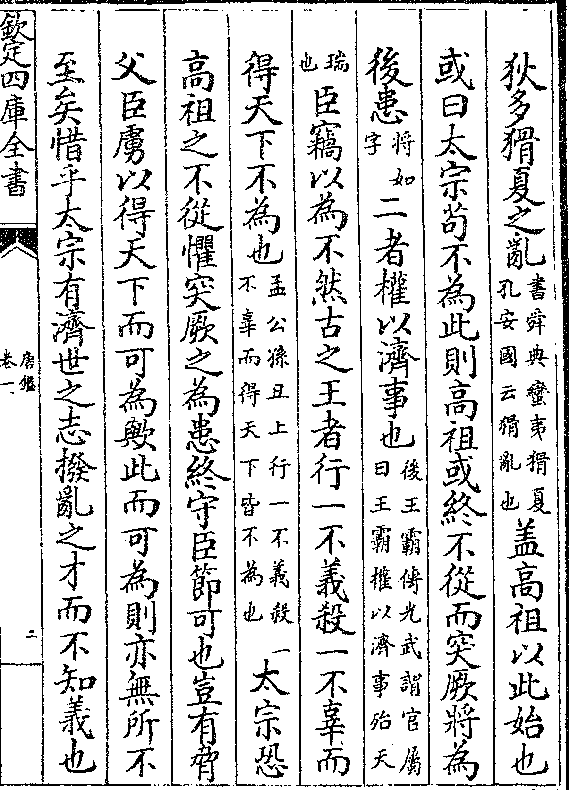 狄多猾夏之亂書舜典蠻夷猾夏孔安國云猾亂也盖高祖以此始也
或曰太宗苟不為此則高祖或終不從而突厥將為
後患將如字二者權以濟事也後王霸傳光武謂官屬曰王霸權以濟事殆天
瑞也臣竊以為不然古之王者行一不義殺一不辜而
得天下不為也孟公孫丑上行一不義殺一不辜而得天下皆不為也太宗恐
高祖之不從懼突厥之為患終守臣節可也豈有脅
父臣虜以得天下而可為歟此而可為則亦無所不
至矣惜乎太宗有濟世之志撥亂之才而不知義也
欽定四庫全書
唐鑑
卷一
二